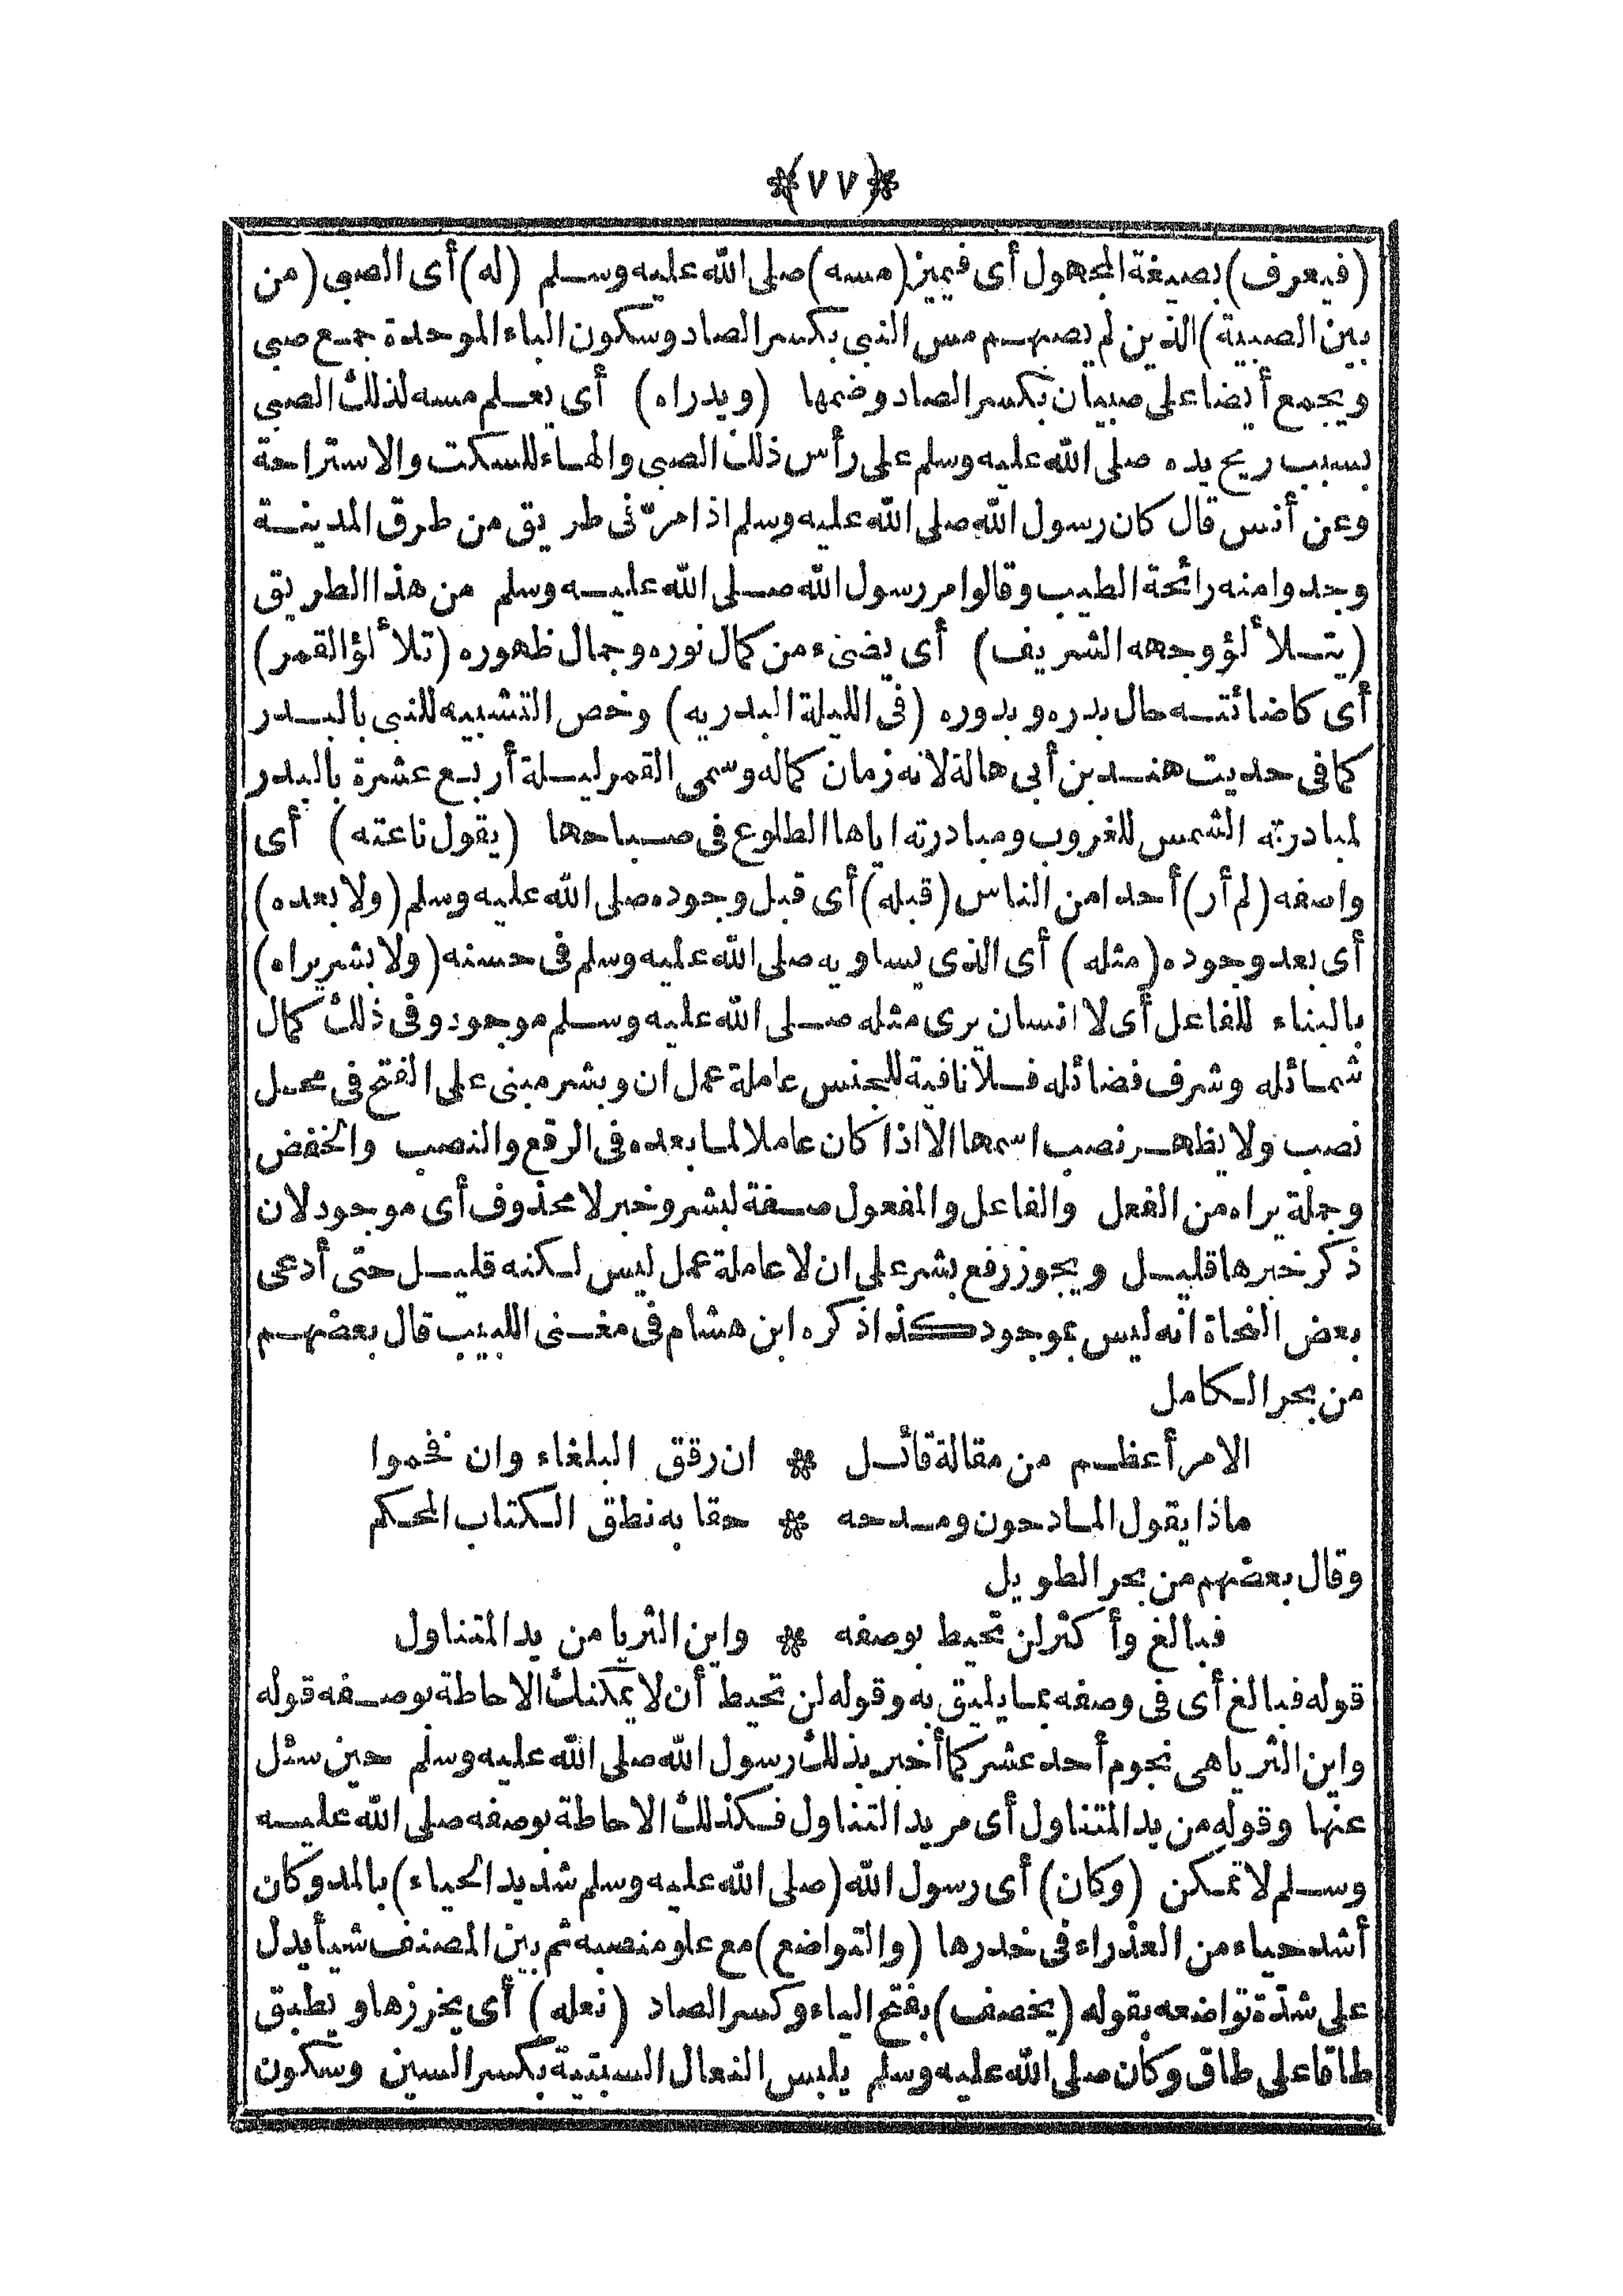 ﴿٧٧﴾
(فيعرف) بصيغة المجهول أى فيميز (مسه) صلى الله عليه وسلم (له) أى الصبى (من
بين الصبية) الذين لم يصبهم مس النبى بكسر الصاد وسكون الباء الموحدة جمع صبى
ويجمع أيضا على صبيان بكسر الصاد وضمها (ويدراه) أى يعلم مسه لذلك الصبى
بسبب ريح يده صلى الله عليه وسلم على رأس ذلك الصبى والهاء للسكت والاستراحة
وعن أنس قال كان رسول الله صلى الله عليه وسلم اذا مرّ فى طريق من طرق المدينة
وجدوا منه رائحة الطيب وقالوا مر رسول الله صلى الله عليه وسلم من هذا الطريق
(يتلألؤ وجهه الشريف) أى يضىء من كمال نوره وجمال ظهوره (تلألؤ القمر)
أى كاضائته حال بدره وبدوره (فى الليلة البدريه) وخص التشبيه للنبى بالبدر
كما فى حديث هند بن أبى هالة لانه زمان كماله وسمى القمر ليلة أربع عشرة بالبدر
لمبادرته الشمس للغروب ومبادرته اياها الطلوع فى صباحها (يقول ناعته) أى
واصفه (لم أر) أحدا من الناس (قبله) أى قبل وجوده صلى الله عليه وسلم (ولا بعده)
أى بعد وجوده (مثله) أى الذى يساويه صلى الله عليه وسلم فى حسنه (ولا بشر يراه)
بالبناء للفاعل أى لا انسان يرى مثله صلى الله عليه وسلم موجود وفى ذلك كمال
شمائله وشرف فضائله فلا نافية للجنس عاملة عمل ان وبشر مبنى على الفتح فى محل
نصب ولا يظهر نصب اسمها الا اذا كان عاملا لما بعده فى الرفع والنصب والخفض
وجملة يراه من الفعل والفاعل والمفعول صفة لبشر وخبر لا محذوف أى موجود لان
ذكر خبرها قليل ويجوز رفع بشر على ان لا عاملة عمل ليس لكنه قليل حتى أدعى
بعض النحاة انه ليس بموجود كذا ذكره ابن هشام فى مغنى اللبيب قال بعضهم
من بحر الكامل
الامر أعظم من مقالة قائل ❊ ان رقق البلغاء وان فخموا
ماذا يقول المادحون ومدحه ❊ حقا به نطق الكتاب المحكم
وقال بعضهم من بحر الطويل
فبالغ وأكثر لن تحيط بوصفه ❊ واين الثريا من يد المتناول
قوله فبالغ أى فى وصفه بما يليق به وقوله لن تحيط أن لا يمكنك الاحاطة بوصفه قوله
واين الثريا هى نجوم أحد عشر كما أخبر بذلك رسول الله صلى الله عليه وسلم حين سئل
عنها وقوله من يد المتناول أى مريد التناول فكذلك الاحاطة بوصفه صلى الله عليه
وسلم لا تمكن (وكان) أى رسول الله (صلى الله عليه وسلم شديد الحياء) بالمد وكان
أشد حياء من العذراء فى خدرها (والتواضع) مع علو منصبه ثم بين المصنف شيأ يدل
على شدّة تواضعه بقوله (يخصف) بفتح الياء وكسر الصاد (نعله) أى يخرزها ويطبق
طاقا على طاق وكان صلى الله عليه وسلم يلبس النعال السبتية بكسر السين وسكون